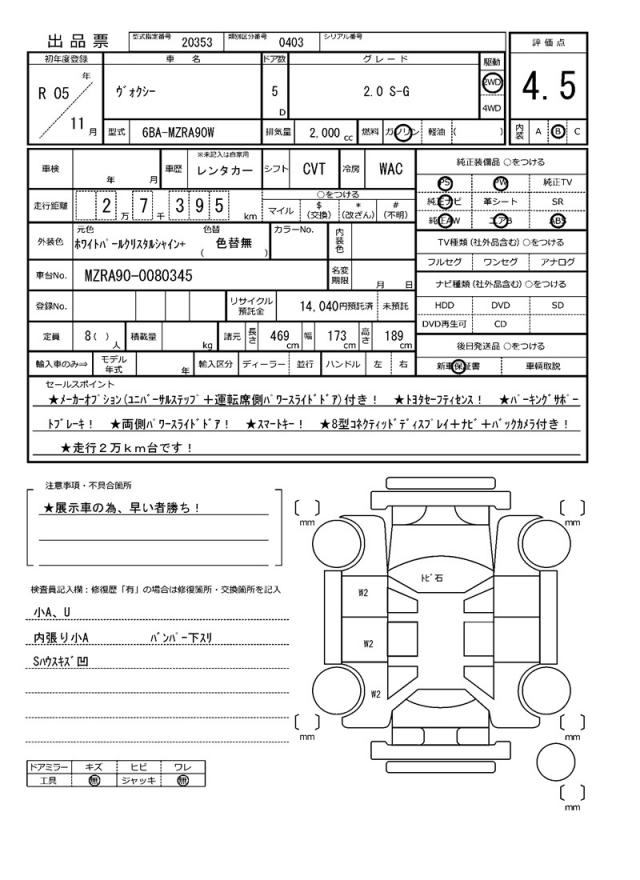 出品票 型式指定番号 20353 類別区分番号 0403 シリアル番号
評価点
4.5
内装 A B C
初年度登録 車名 ドア数 グレード 駆動
R 05 年 11 月 ヴォクシー 5 D 2.0 S-G 2WD 4WD
型式 6BA-MZRA90W 排気量 2,000 cc 燃料 ガソリン 軽油 ( )
車検 年 月 車歴 ※未記入は自家用 レンタカー シフト CVT 冷房 WAC
走行距離 2 万 7 千 3 9 5 km ○をつける
マイル $ (交換) * (改ざん) # (不明)
外装色 元色 ホワイトパールクリスタルシャイン+ 色替 ( 色替無 ) カラーNo. 内装色
車台No. MZRA90-0080345 名変期限 月 日
登録No. リサイクル預託金 14,040円預託済 未預託
定員 8( ) 人 積載量 kg 諸元 長さ 469 cm 幅 173 cm 高さ 189 cm
輸入車のみ⇒ モデル年式 年 輸入区分 ディーラー 並行 ハンドル 左 右
純正装備品 ○をつける
PS PW 純正TV
純正ナビ 革シート SR
純正AW エアB ABS
TV種類(社外品含む)○をつける
フルセグ ワンセグ アナログ
ナビ種類(社外品含む)○をつける
HDD DVD SD
DVD再生可 CD
後日発送品 ○をつける
新車保証書 車輌取説
セールスポイント
★メーカーオプション(ユニバーサルステップ+運転席側パワースライドドア)付き! ★トヨタセーフティセンス! ★パーキングサポー
トブレーキ! ★両側パワースライドドア! ★スマートキー! ★8型コネクティッドディスプレイ+ナビ+バックカメラ付き!
★走行2万km台です!
注意事項・不具合箇所
★展示車の為、早い者勝ち!
検査員記入欄:修復歴「有」の場合は修復箇所・交換箇所を記入
小A、U
内張り小A バンパー下スリ
Sハウスキズ凹
ドアミラー キズ ヒビ ワレ
工具 無 ジャッキ 無
mm
mm
トビ石
W2
W2
W2
mm
mm
mm